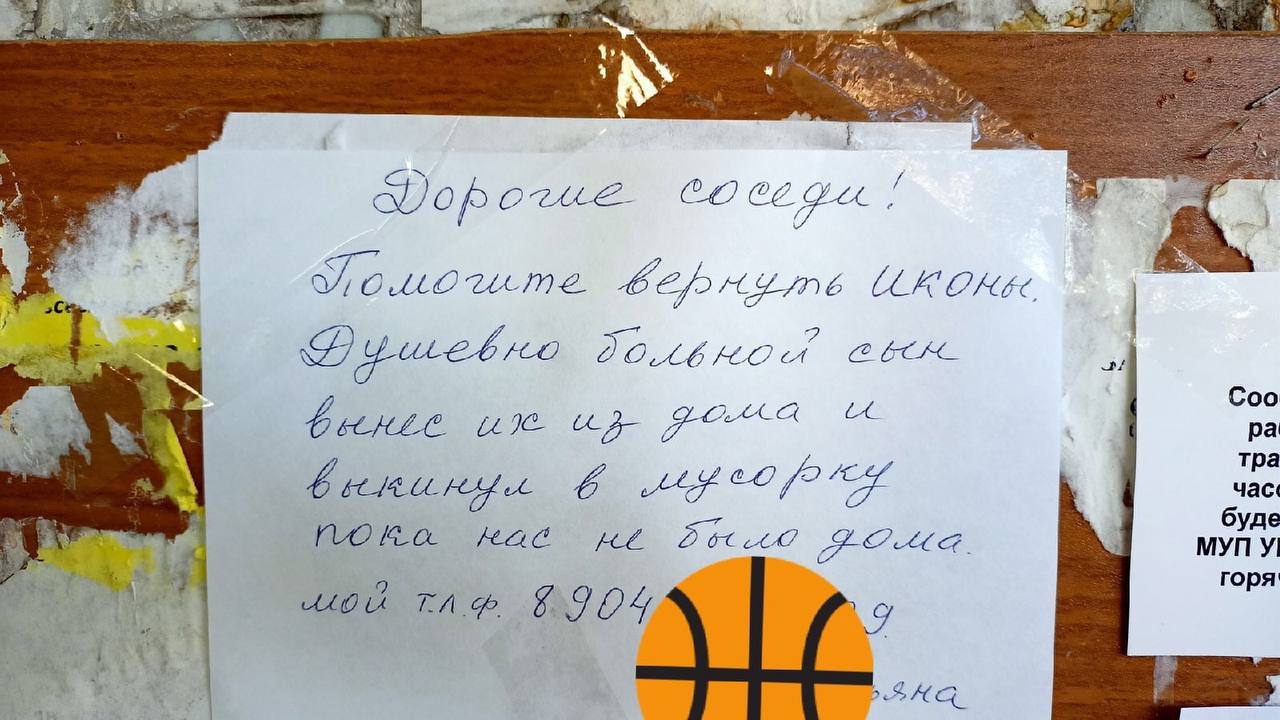 Дорогие соседи!
Помогите вернуть иконы.
Душевно больной сын
вынес их из дома и
выкинул в мусорку
пока нас не было дома.
мой т.л.ф. 8904
Соо
ра
тра
час
буде
МУП У
горя